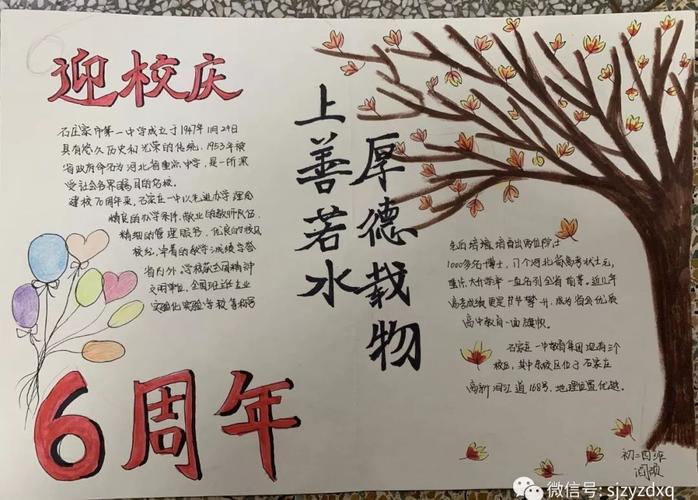 迎校庆
石庄家市第一中学成立于1947年11月29日
具有悠久历史和光荣的传统，1953年被
省政府命名为河北省重点中学，是一所深
受社会各界瞩目的名校。
建校70周年来，石家庄一中以先进办学理念
精良的办学条件，敬业的教师队伍，
精细的管理服务，优良的校风
校纪，丰着的教学成绩享誉
省内外，学校获全国精神
文明单位，全国班迁主业
实验化实验学校等称号
6周年
上善若水
厚德载物
先后培植，培育出两位院士
1000多名博士，17个河北省高考状元，
重点大学升学率一直名列全省前茅，近几年
高考成绩更是节节攀升，成为省会优质
高中教育一面旗帜。
石家庄一中教育集团现有三个
校区，其中东校区位于石家庄
高新河江道168号，地理位置优越。
初二四班
微信号: sjzyzdxq